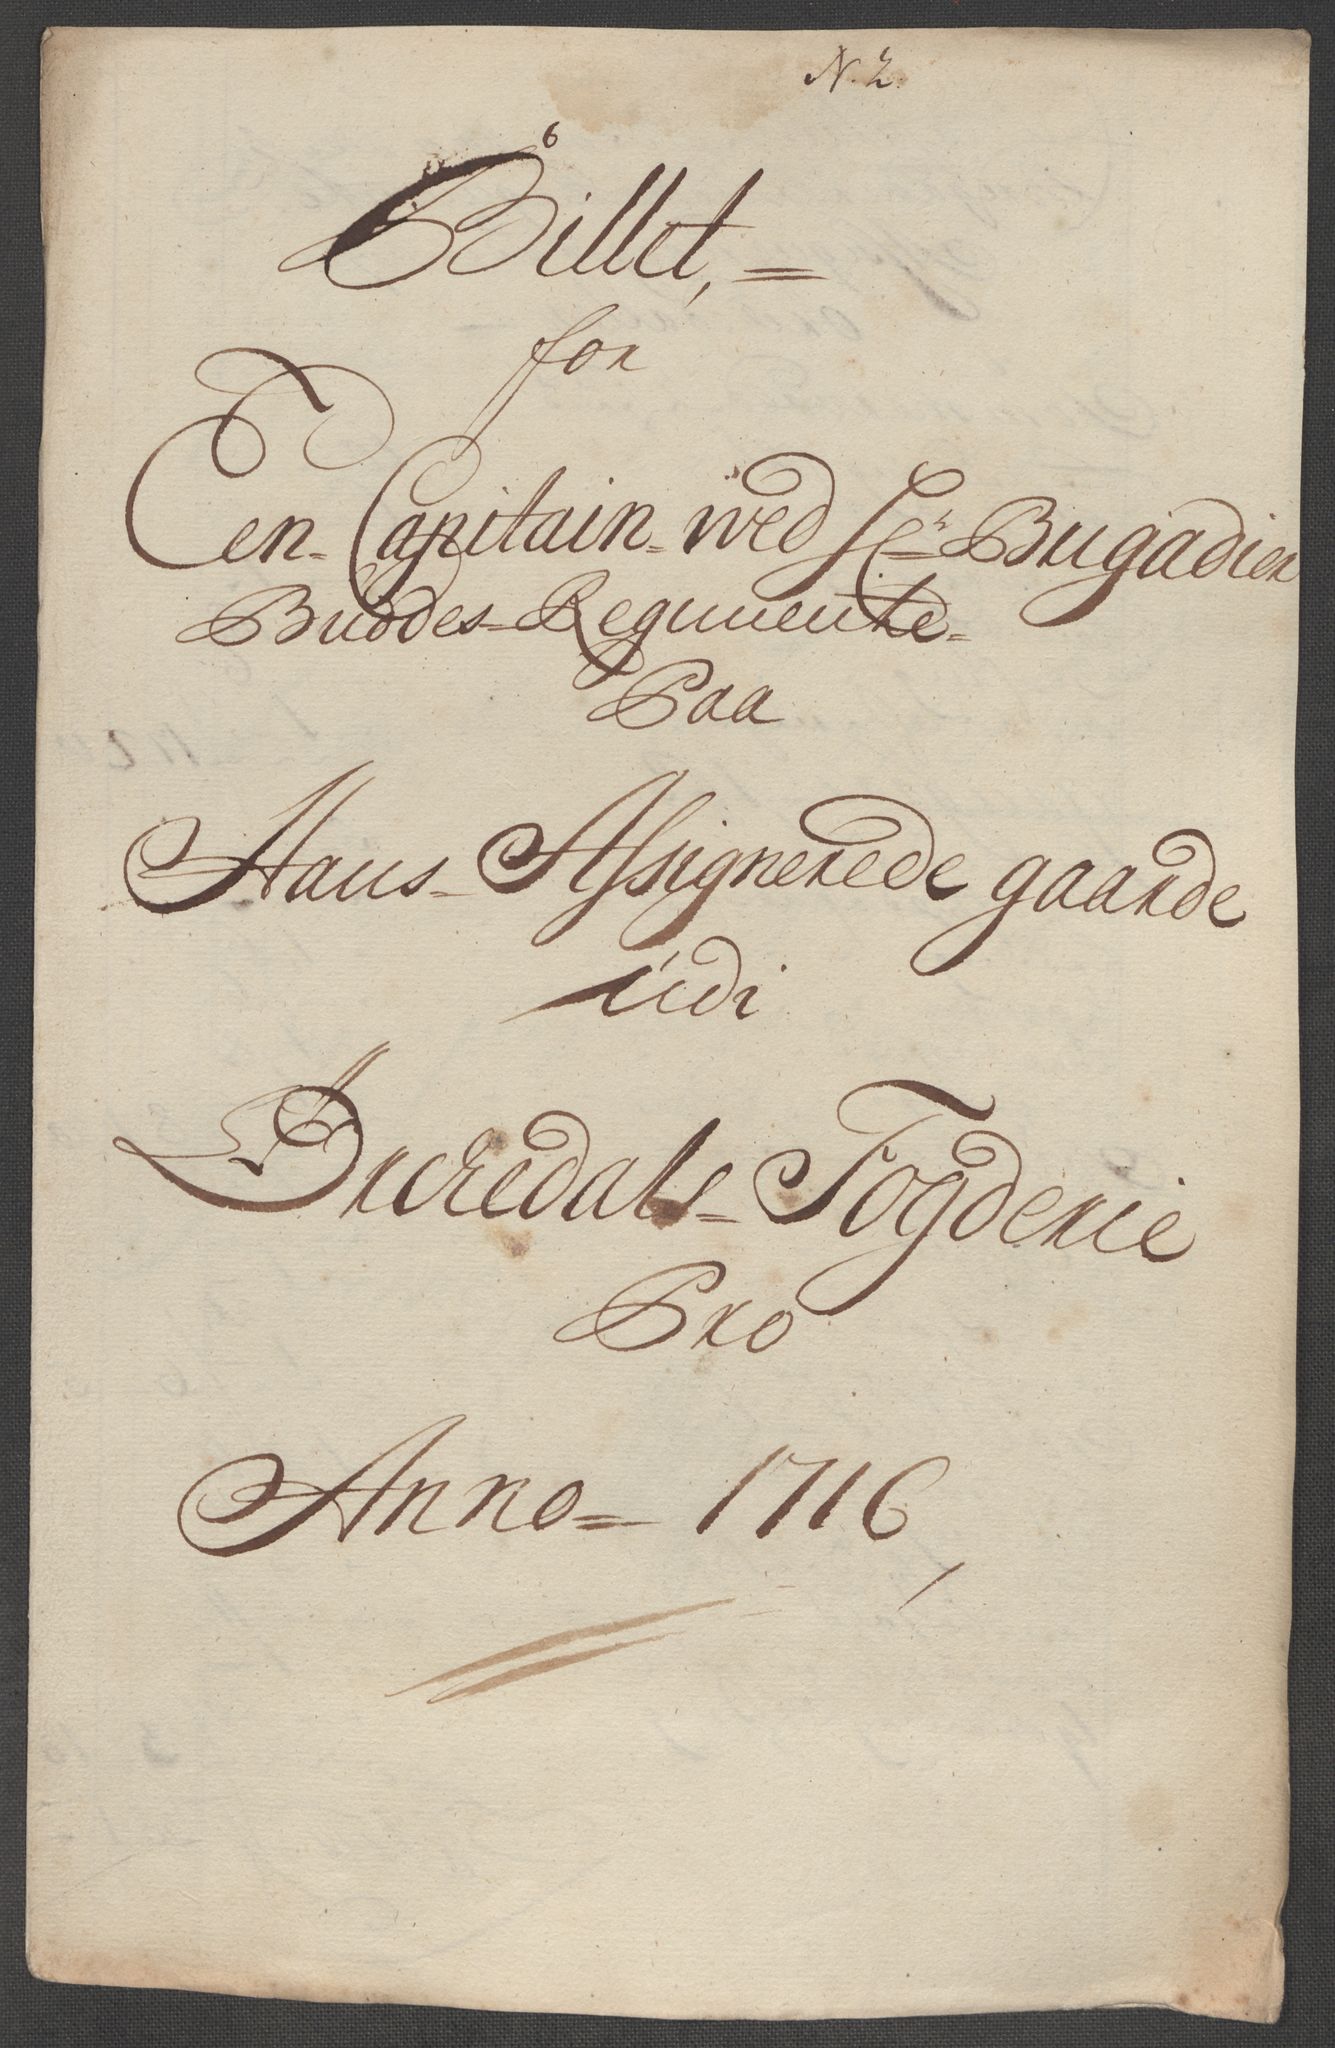 N. 2.
6
Billet,=
for
En Capitain ved Hr Brigadier
Buddes Regimente
Paa
Hans Assignerede gaarde
udi
Fogderie
Pro
Anno= 1716